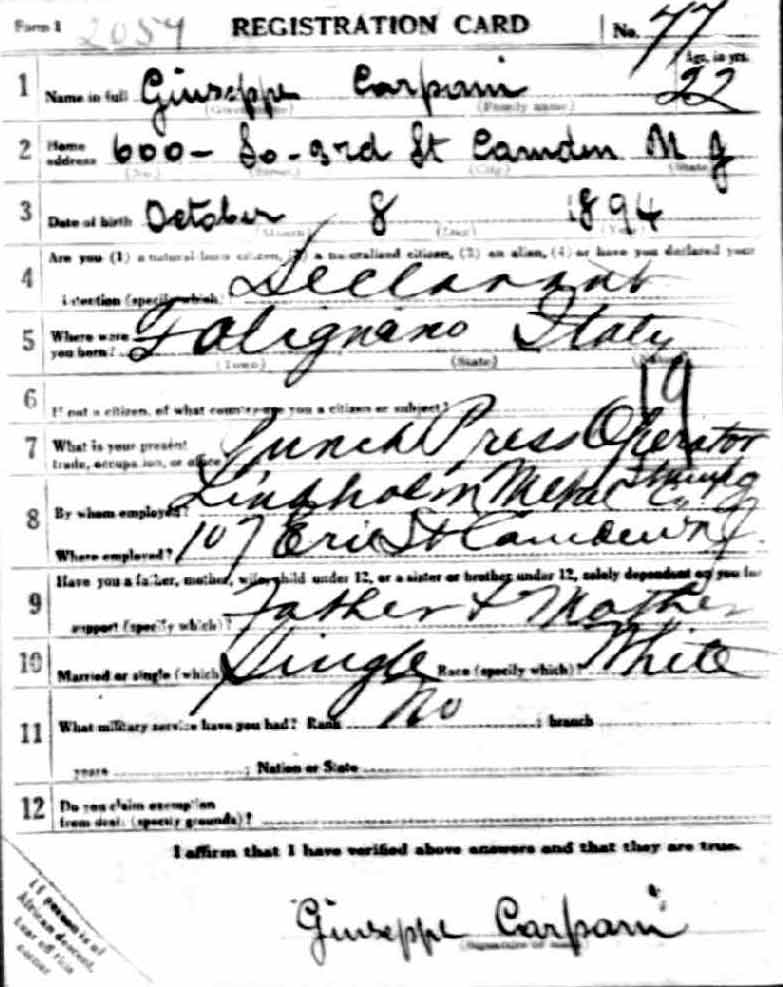 Form 1 2059 REGISTRATION CARD No. 77
Age, in yrs.
1 Name in full Giuseppe Carpani 22
(Given name) (Family name)
2 Home address 600- So-3rd St Camden N J
(No.) (Street) (City) (State)
3 Date of birth October 8 1894
(Month) (Day) (Year)
Are you (1) a natural-born citizen, (2) a naturalized citizen, (3) an alien, (4) or have you declared your
4 intention (specify which)? Declarant
5 Where were you born? Italy
(Town) (State) (Nation)
19
6 If not a citizen, of what country are you a citizen or subject?
7 What is your present trade, occupation, or office? Punch Press Operator
8 By whom employed? Metal Co
Where employed? 107 Erie St Camden N J
Have you a father, mother, wife, child under 12, or a sister or brother under 12, solely dependent on you for
9 support (specify which)? Father & Mother
10 Married or single (which)? Single Race (specify which)? White
11 What military service have you had? Rank No ; branch
years ; Nation or State
12 Do you claim exemption
from draft (specify grounds)?
I affirm that I have verified above answers and that they are true.
Giuseppe Carpani
If person is of
African descent,
tear off this
corner